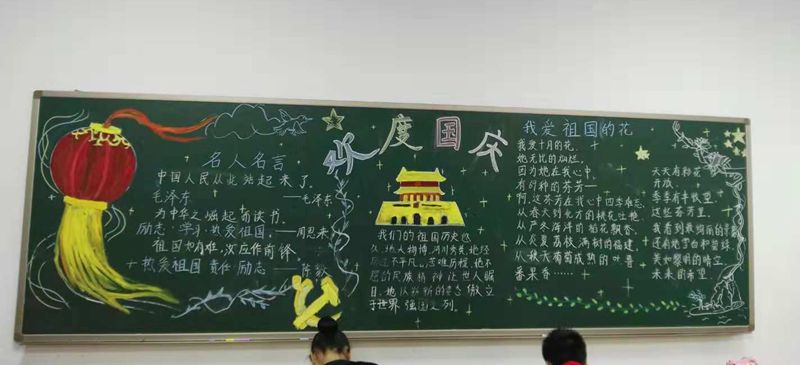 欢度国庆
名人名言
中国人民从此站起来了。
——毛泽东
毛泽东
为中华之崛起而读书。
励志 学习 热爱祖国。——周恩来
祖国如有难，汝应作前锋。
热爱祖国 责任 励志 ——陈毅
我们的祖国历史悠
久，地大物博，河山秀美，她经
历过不平凡
苦难历程，但不
屈的民族精神让世人瞩
目，她以崭新的姿态傲立
于世界强国之列。
我爱祖国的花
我爱十月的花，
她无比的灿烂，
因为她在我心中，
有别种的芬芳——
啊，这芬芳在我心中四季难忘，
从春天到北方的桃花吐艳
从严冬海洋的稻花飘香，
从炎夏荔枝满树的福建，
从秋天葡萄成熟的吐鲁
番果香……
天天有鲜花
开放，
季季有丰收望，
这些芬芳里，
我看到
还有她雪白和
美如黎明的晴空
未来的希望。